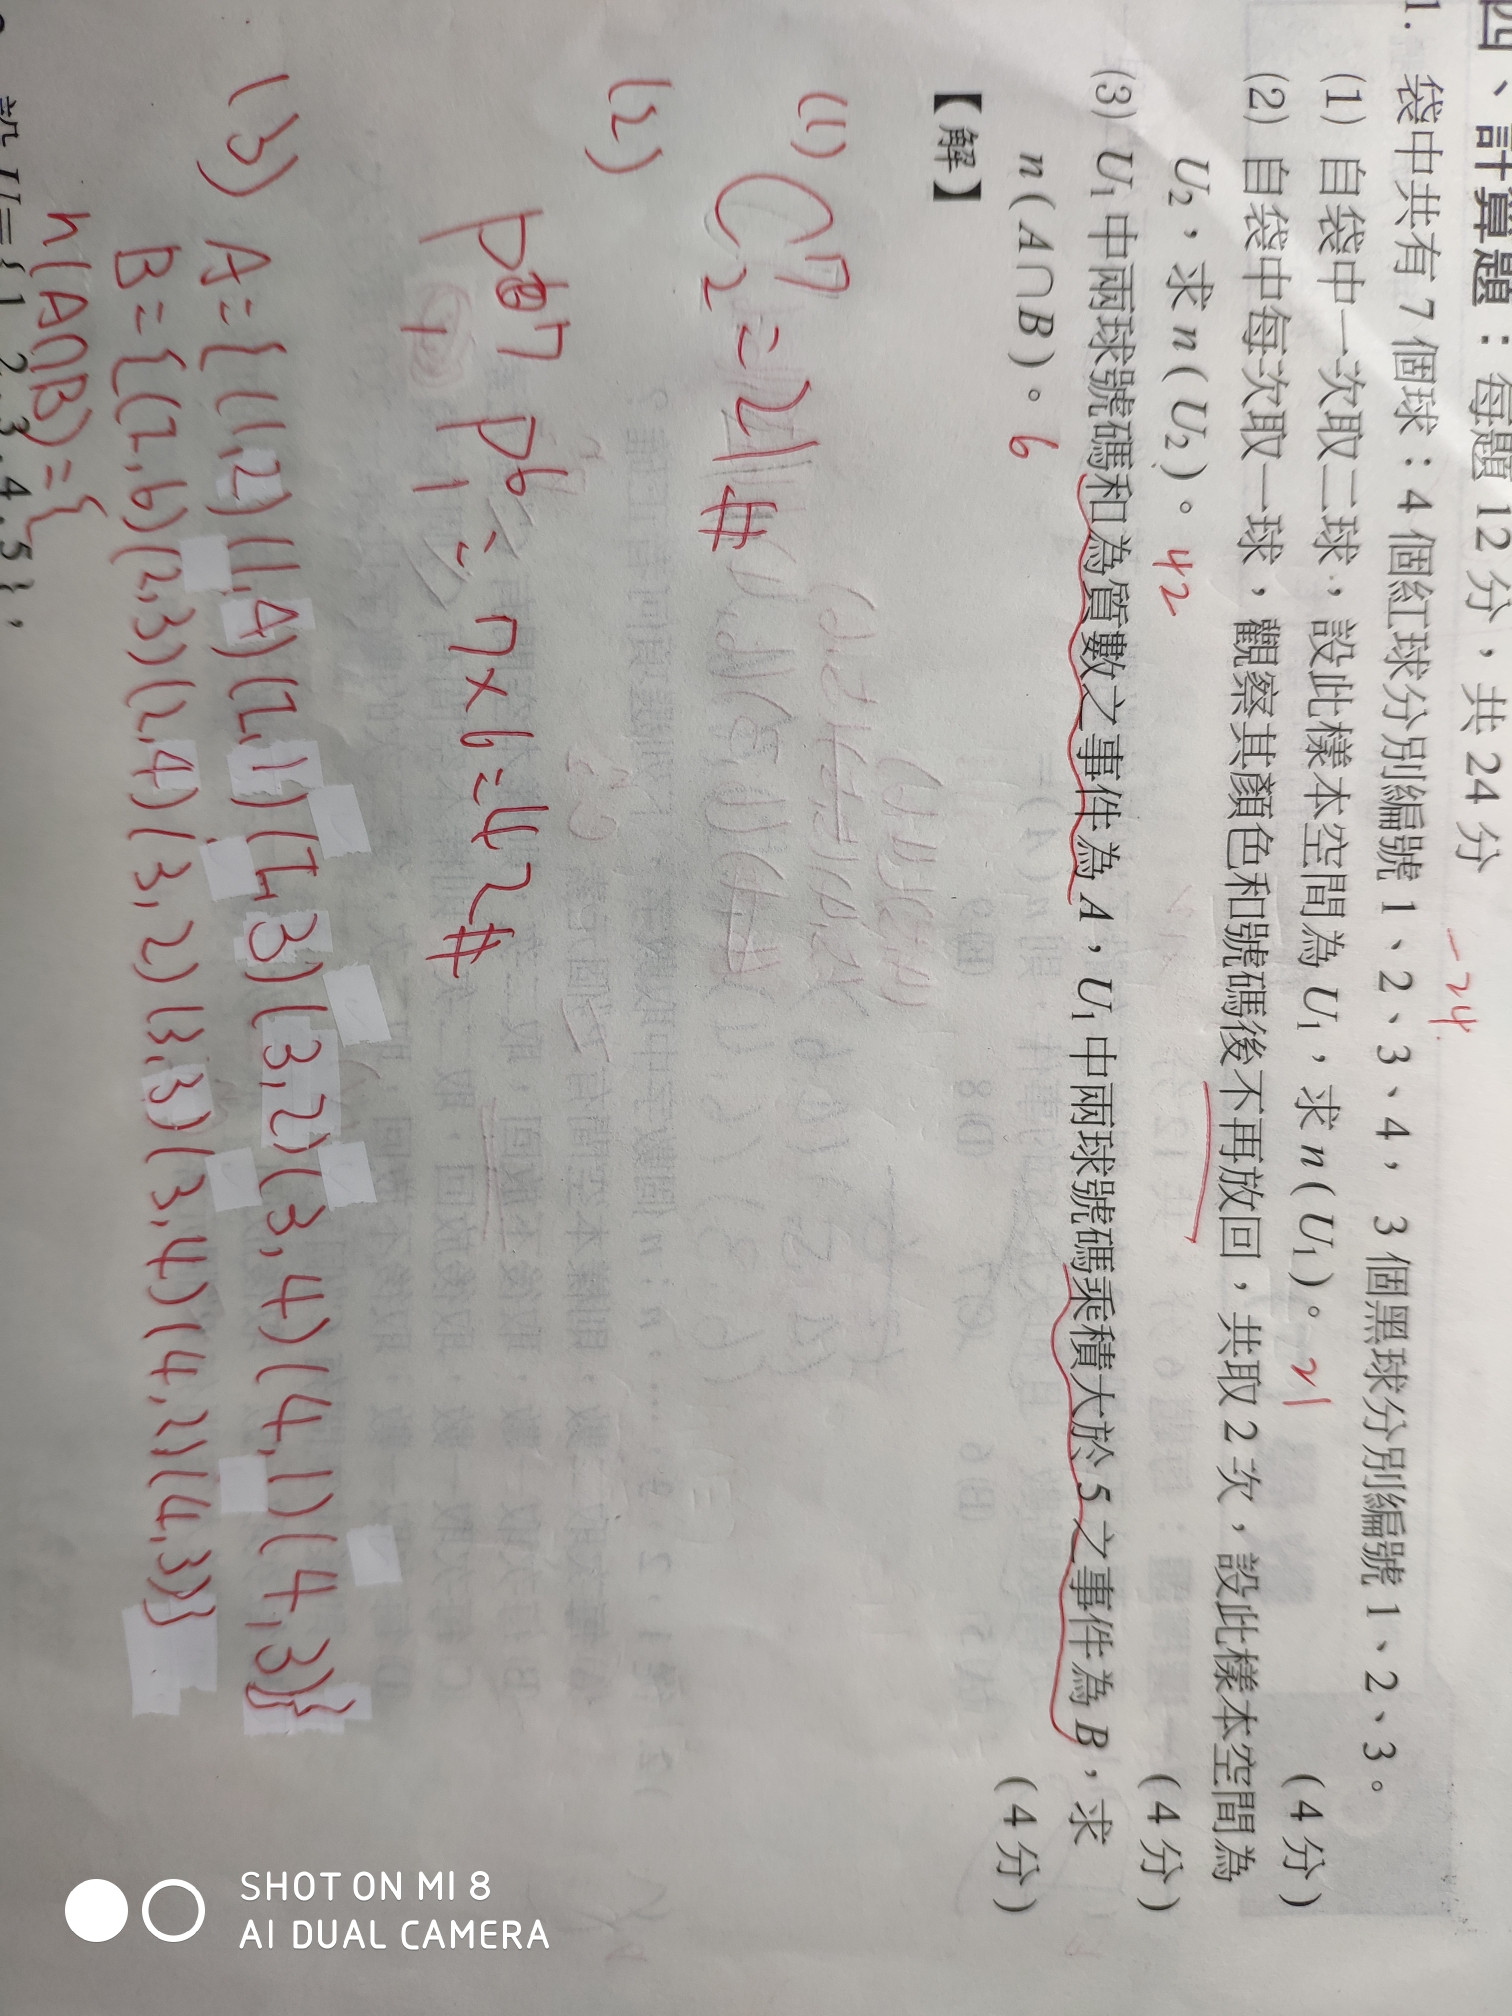 四、計算題：每題 12 分，共 24 分
-24
1. 袋中共有 7 個球：4 個紅球分別編號 1、2、3、4，3 個黑球分別編號 1、2、3。
(1) 自袋中一次取二球，設此樣本空間為 U₁，求 n(U₁)。 21 (4 分)
(2) 自袋中每次取一球，觀察其顏色和號碼後不再放回，共取 2 次，設此樣本空間為
U₂，求 n(U₂)。 42 (4 分)
(3) U₁ 中兩球號碼和為質數之事件為 A，U₁ 中兩球號碼乘積大於 5 之事件為 B，求
n(A∩B)。 6 (4 分)
【解】
(1) C⁷₂=21#
(2) P⁷₁ P⁶₁ = 7×6=42#
(3) A={(1,2)(1,4)(2,1)(2,3)(3,2)(3,4)(4,1)(4,3)}
B={(2,6)(2,3)(2,4)(3,2)(3,3)(3,4)(4,2)(4,3)}
n(A∩B)={
設 U={1,2,3,4,5}，
SHOT ON MI 8
AI DUAL CAMERA